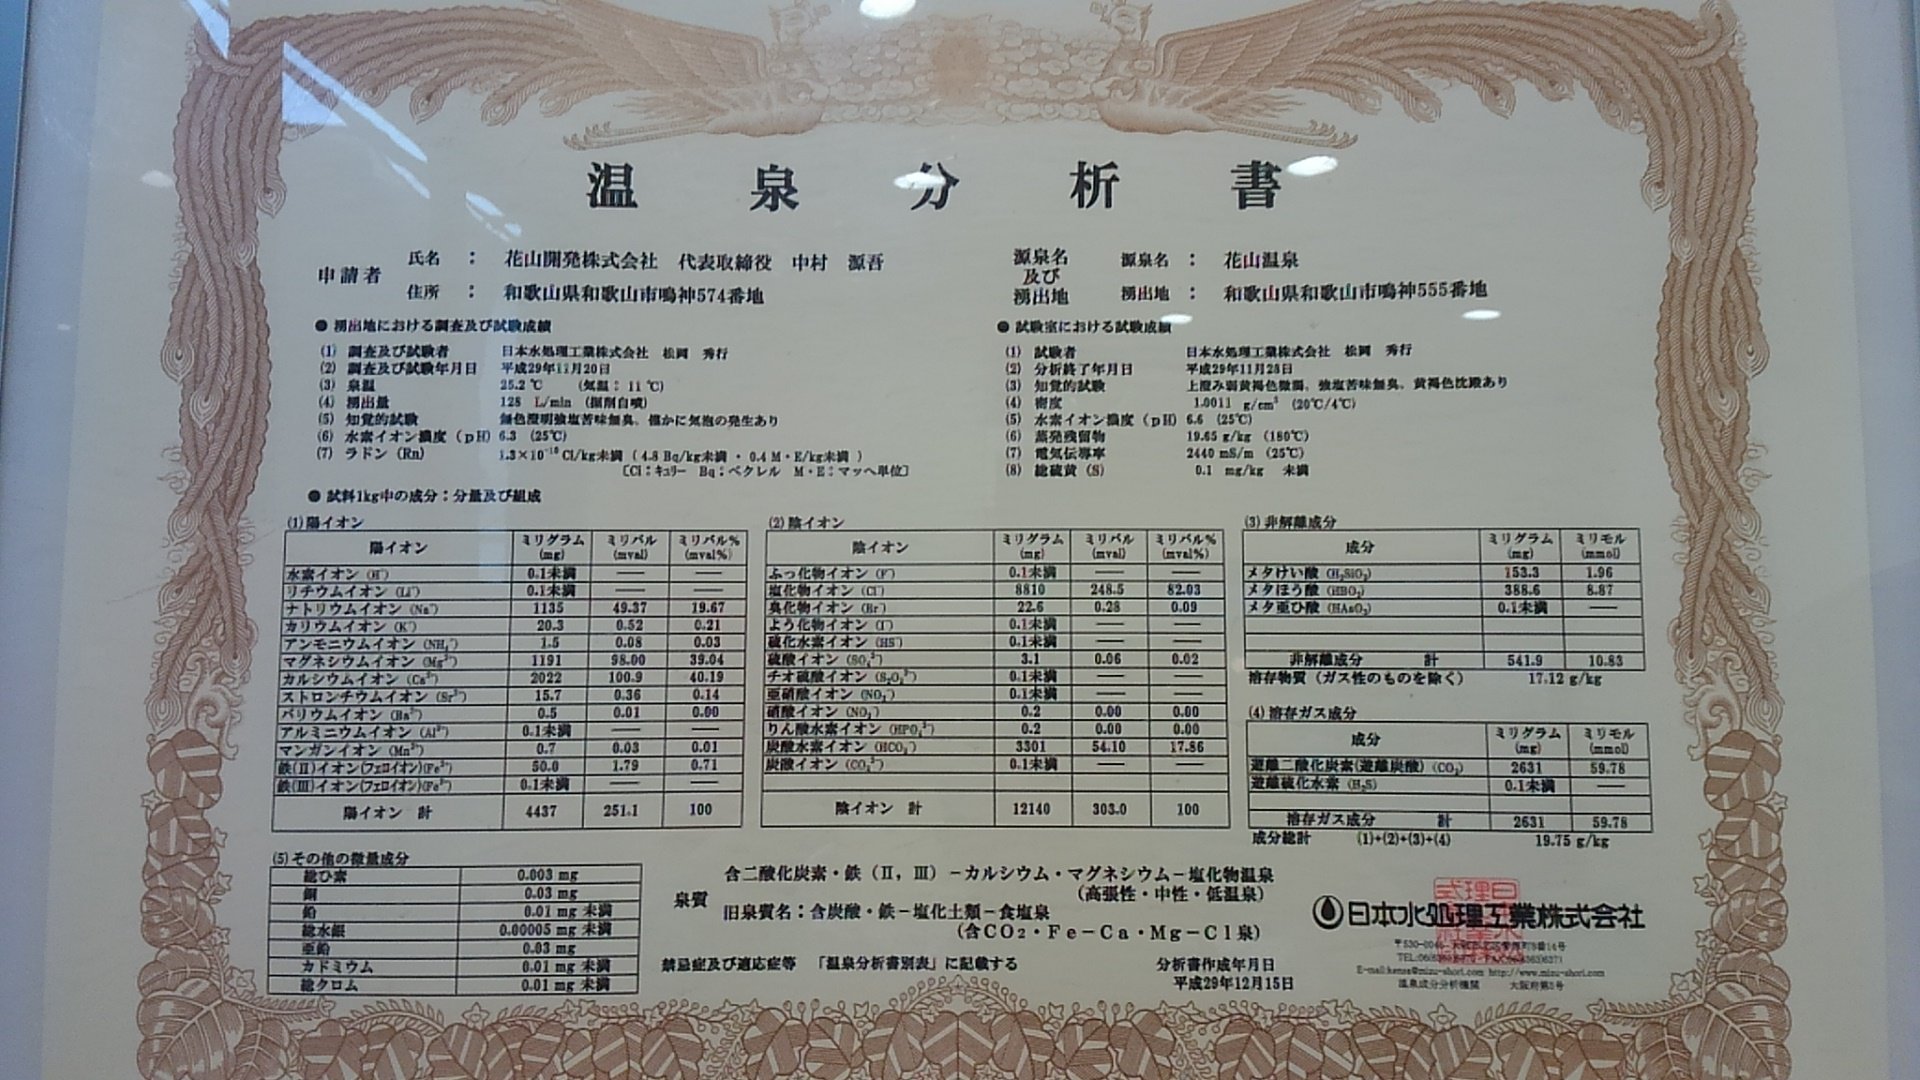 温泉分析書
申請者 氏名 : 花山開発株式会社 代表取締役 中村 源吾
住所 : 和歌山県和歌山市鳴神574番地
源泉名及び湧出地 源泉名 : 花山温泉
湧出地 : 和歌山県和歌山市鳴神555番地
● 湧出地における調査及び試験成績
(1) 調査及び試験者 日本水処理工業株式会社 松岡 秀行
(2) 調査及び試験年月日 平成29年11月20日
(3) 泉温 25.2 ℃ (気温: 11 ℃)
(4) 湧出量 128 L/min (掘削自噴)
(5) 知覚的試験 無色澄明強塩苦味無臭、僅かに気泡の発生あり
(6) 水素イオン濃度 (pH) 6.3 (25℃)
(7) ラドン (Rn) 1.3×10⁻¹⁰ Ci/kg未満 ( 4.8 Bq/kg未満 ・ 0.4 M・E/kg未満 )
[Ci:キュリー Bq:ベクレル M・E:マッヘ単位]
● 試験室における試験成績
(1) 試験者 日本水処理工業株式会社 松岡 秀行
(2) 分析終了年月日 平成29年11月28日
(3) 知覚的試験 上澄み弱黄褐色微濁、強塩苦味無臭、黄褐色沈殿あり
(4) 密度 1.0011 g/cm³ (20℃/4℃)
(5) 水素イオン濃度 (pH) 6.6 (25℃)
(6) 蒸発残留物 19.65 g/kg (180℃)
(7) 電気伝導率 2440 mS/m (25℃)
(8) 総硫黄 (S) 0.1 mg/kg 未満
● 試料1kg中の成分:分量及び組成
(1) 陽イオン
陽イオン ミリグラム (mg) ミリバル (mval) ミリバル% (mval%)
水素イオン (H⁺) 0.1未満 —— ——
リチウムイオン (Li⁺) 0.1未満 —— ——
ナトリウムイオン (Na⁺) 1135 49.37 19.67
カリウムイオン (K⁺) 20.3 0.52 0.21
アンモニウムイオン (NH₄⁺) 1.5 0.08 0.03
マグネシウムイオン (Mg²⁺) 1191 98.00 39.04
カルシウムイオン (Ca²⁺) 2022 100.9 40.19
ストロンチウムイオン (Sr²⁺) 15.7 0.36 0.14
バリウムイオン (Ba²⁺) 0.5 0.01 0.00
アルミニウムイオン (Al³⁺) 0.1未満 —— ——
マンガンイオン (Mn²⁺) 0.7 0.03 0.01
鉄(Ⅱ)イオン(フェロイオン)(Fe²⁺) 50.0 1.79 0.71
鉄(Ⅲ)イオン(フェロイオン)(Fe³⁺) 0.1未満 —— ——
陽イオン 計 4437 251.1 100
(2) 陰イオン
陰イオン ミリグラム (mg) ミリバル (mval) ミリバル% (mval%)
ふっ化物イオン (F⁻) 0.1未満 —— ——
塩化物イオン (Cl⁻) 8810 248.5 82.03
臭化物イオン (Br⁻) 22.6 0.28 0.09
よう化物イオン (I⁻) 0.1未満 —— ——
硫化水素イオン (HS⁻) 0.1未満 —— ——
硫酸イオン (SO₄²⁻) 3.1 0.06 0.02
チオ硫酸イオン (S₂O₃²⁻) 0.1未満 —— ——
亜硝酸イオン (NO₂⁻) 0.1未満 —— ——
硝酸イオン (NO₃⁻) 0.2 0.00 0.00
りん酸水素イオン (HPO₄²⁻) 0.2 0.00 0.00
炭酸水素イオン (HCO₃⁻) 3301 54.10 17.86
炭酸イオン (CO₃²⁻) 0.1未満 —— ——
陰イオン 計 12140 303.0 100
(3) 非解離成分
成分 ミリグラム (mg) ミリモル (mmol)
メタけい酸 (H₂SiO₃) 153.3 1.96
メタほう酸 (HBO₂) 388.6 8.87
メタ亜ひ酸 (HAsO₂) 0.1未満 ——
非解離成分 計 541.9 10.83
溶存物質 (ガス性のものを除く) 17.12 g/kg
(4) 溶存ガス成分
成分 ミリグラム (mg) ミリモル (mmol)
遊離二酸化炭素(遊離炭酸) (CO₂) 2631 59.78
遊離硫化水素 (H₂S) 0.1未満 ——
溶存ガス成分 計 2631 59.78
成分総計 (1)+(2)+(3)+(4) 19.75 g/kg
(5) その他の微量成分
総ひ素 0.003 mg
銅 0.03 mg
鉛 0.01 mg 未満
総水銀 0.00005 mg 未満
亜鉛 0.03 mg
カドミウム 0.01 mg 未満
総クロム 0.01 mg 未満
泉質 含二酸化炭素・鉄 (Ⅱ, Ⅲ) -カルシウム・マグネシウム-塩化物温泉
(高張性・中性・低温泉)
旧泉質名:含炭酸・鉄-塩化土類-食塩泉
(含CO₂・Fe-Ca・Mg-Cl泉)
禁忌症及び適応症等 「温泉分析書別表」に記載する
分析書作成年月日
平成29年12月15日
日本水処理工業株式会社
E-mail:kensa@mizu-shori.com http://www.mizu-shori.com
温泉成分分析機関 大阪府第5号